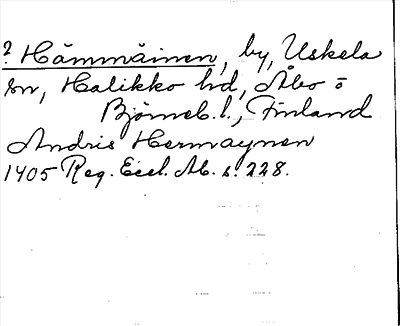 ? Hämmäinen, by, Uskela
sn, Halikko hd, Åbo o
Björneb. l., Finland
Andris Hermaynen
1405 Reg. Eccl. Ab. s. 228.